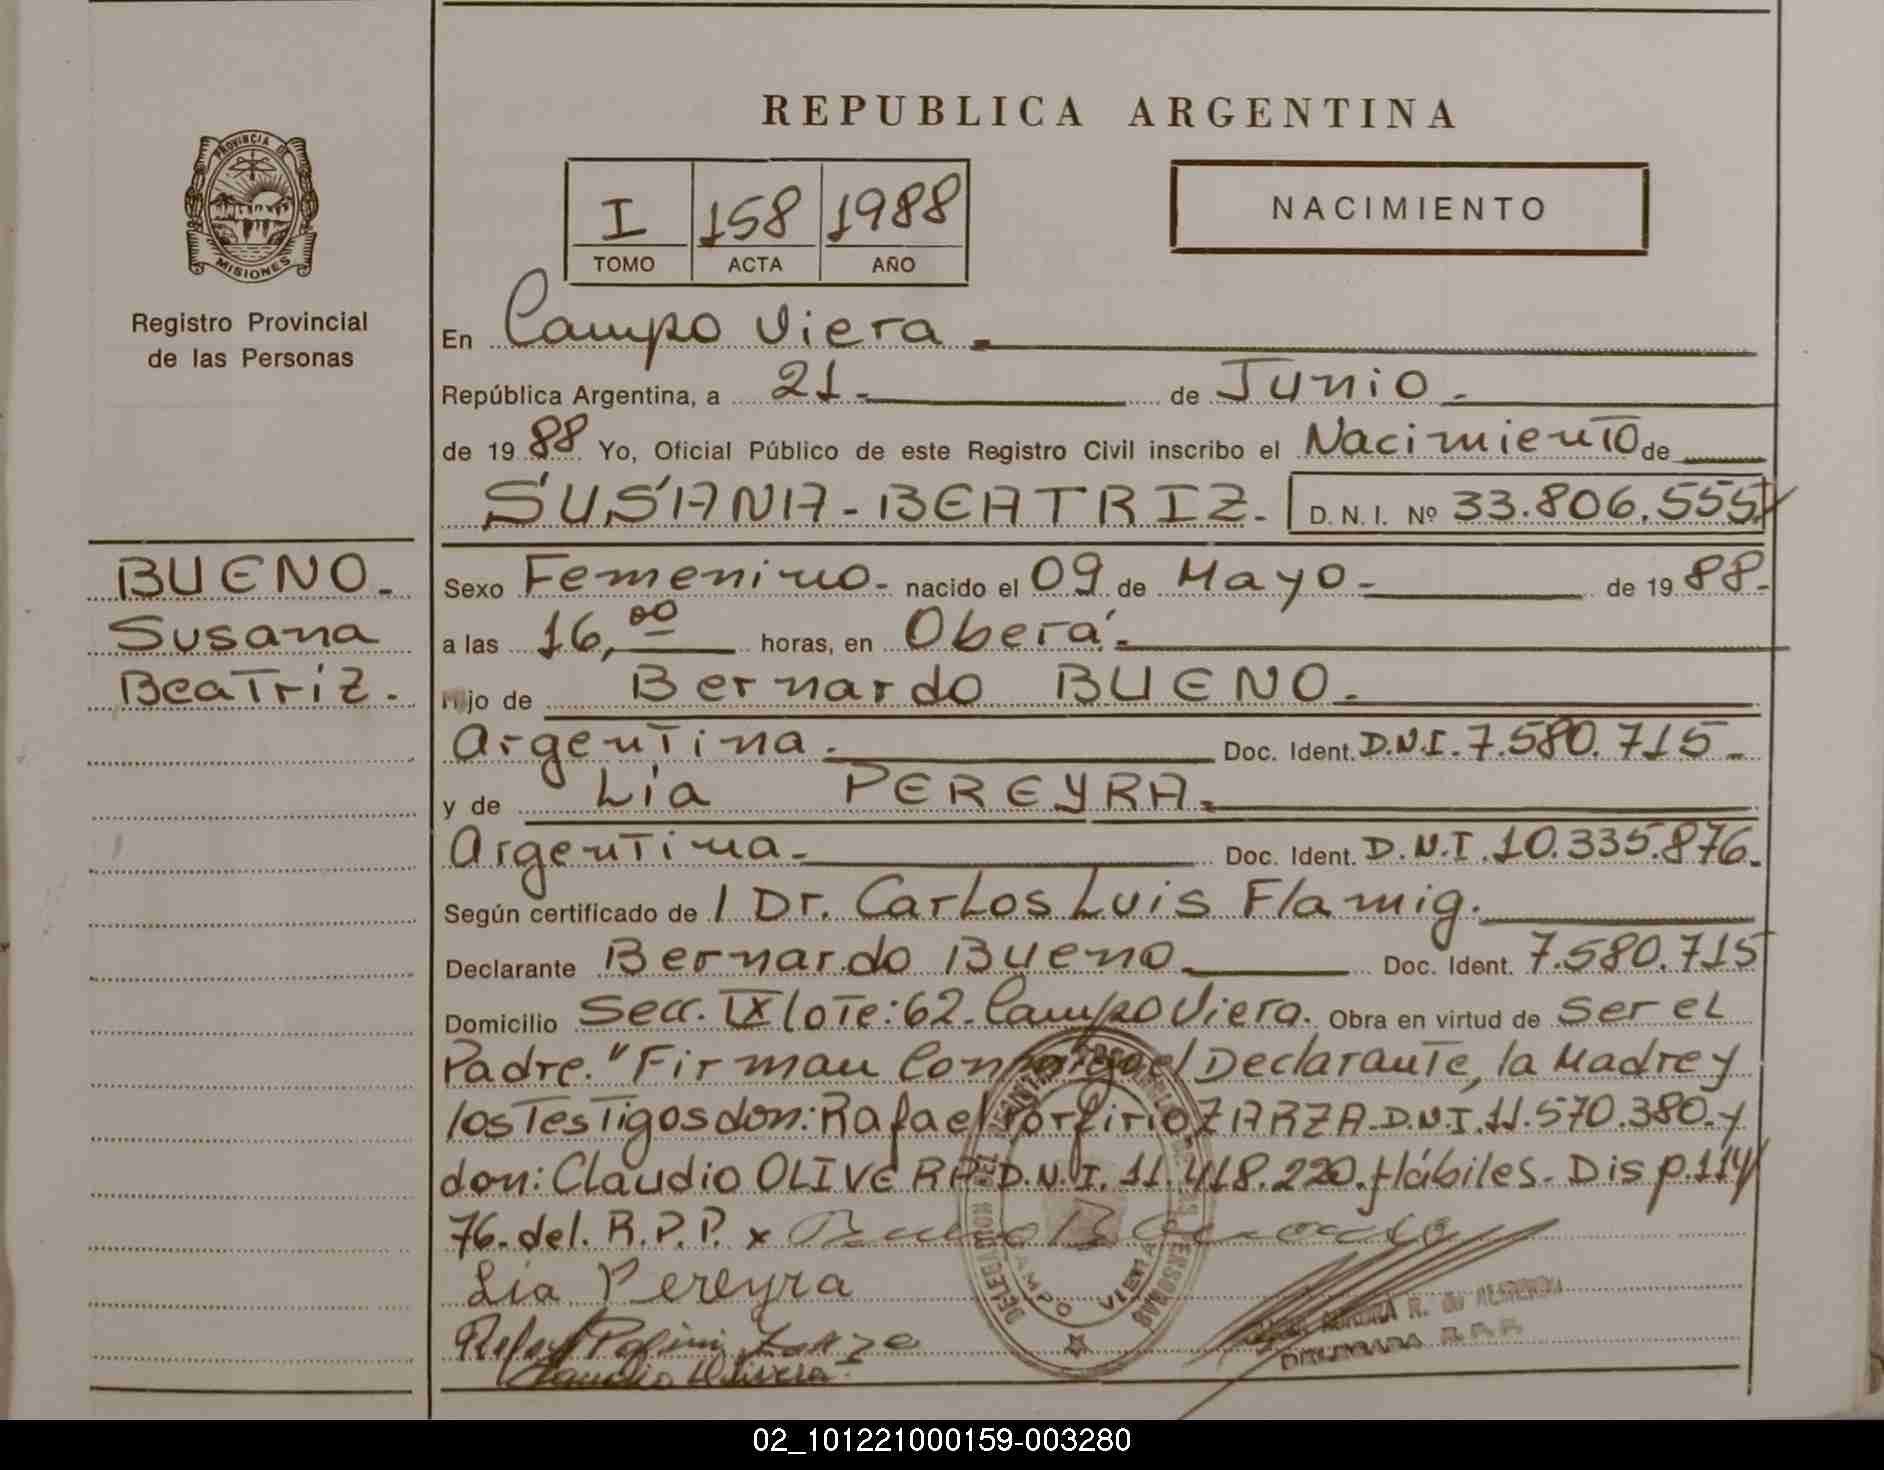 REPUBLICA ARGENTINA
PROVINCIA DE
MISIONES
Registro Provincial
de las Personas
I 158 1988
TOMO ACTA AÑO
NACIMIENTO
En Campo Viera.
República Argentina, a 21. de Junio.
de 19 88 Yo, Oficial Público de este Registro Civil inscribo el Nacimiento de
SUSANA - BEATRIZ. D. N. I. Nº 33.806.555
BUENO.
Susana
Beatriz.
Sexo Femenino. nacido el 09 de Mayo. de 19 88.
a las 16,00 horas, en Oberá.
Hijo de Bernardo BUENO.
Argentina. Doc. Ident. D.N.I. 7.580.715.
y de Lia PEREYRA.
Argentina. Doc. Ident. D.N.I. 10.335.876.
Según certificado de / Dr. Carlos Luis Flamig.
Declarante Bernardo Bueno Doc. Ident. 7.580.715
Domicilio Secc. IX lote: 62. Campo Viera. Obra en virtud de ser el
Padre. "Firman Conmigo el Declarante, la Madre y
los Testigos don: Rafael Porfirio ZARZA. D.N.I. 11.570.380. y
don: Claudio OLIVERA D.N.I. 11.418.220. Hábiles. Disp. 114/
76. del. R.P.P. x Bueno Bernardo
Lia Pereyra
Claudio Olivera
CAMPO VIERA
02_101221000159-003280